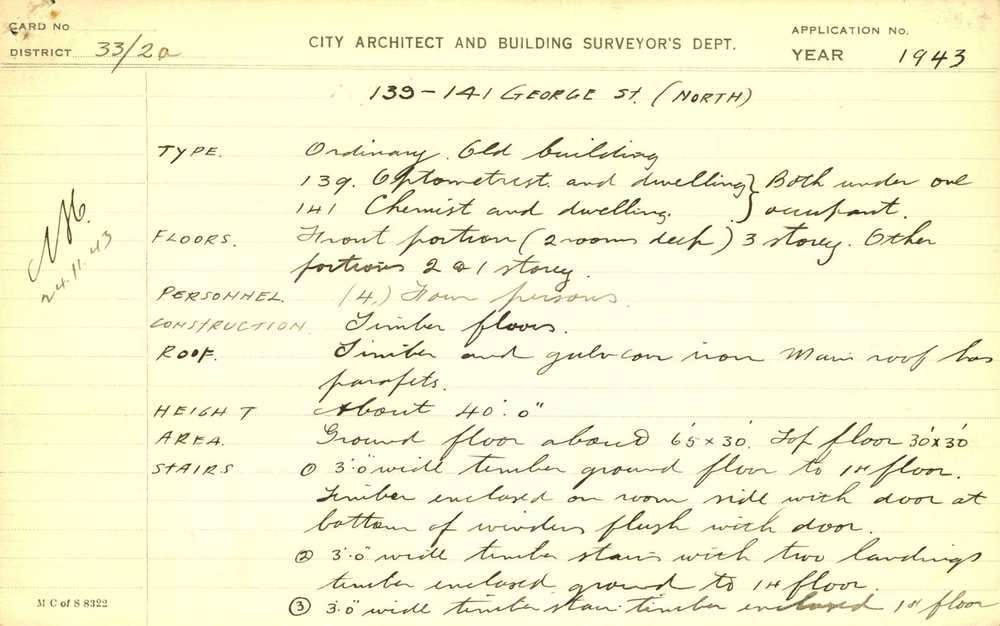 CARD No
DISTRICT 33/2a
CITY ARCHITECT AND BUILDING SURVEYOR'S DEPT.
APPLICATION No.
YEAR 1943
139-141 GEORGE St. (NORTH)
TYPE. Ordinary. Old building
139. Optometrist. and dwelling } Both under one
141 Chemist and dwelling. } occupant.
FLOORS. Front portion (2 rooms deep) 3 storey. Other
portions 2 & 1 storey.
24.11.43
PERSONNEL. (4.) Four persons.
CONSTRUCTION. Timber floors.
ROOF. Timber and galv corr iron Main roof has
parapets.
HEIGHT About 40'.0"
AREA. Ground floor about 65'x30'. Top floor 30'x30'
STAIRS ① 3'.0" wide timber ground floor to 1st floor.
Timber enclosed on room side with door at
bottom of winders flush with door.
② 3'.0" wide timber stairs with two landings
timber enclosed ground to 1st floor.
③ 3'.0" wide timber stair timber enclosed 1st floor
M C of S 8322